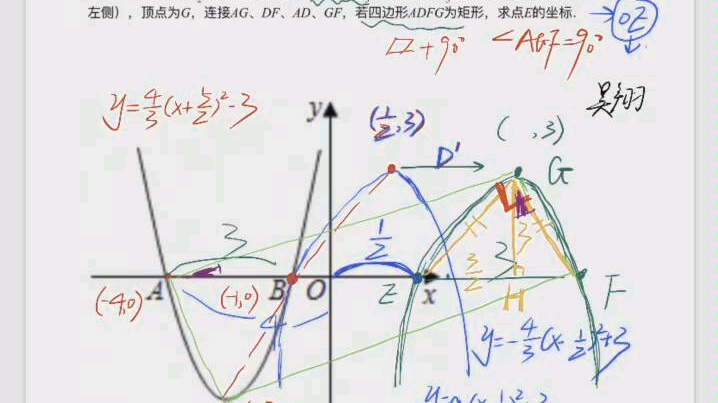 左侧），顶点为G，连接AG、DF、AD、GF，若四边形ADFG为矩形，求点E的坐标. → OE
▱ + 90° ∠AGF=90°
y=4/3(x+5/2)²-3
y
(1/2,3)
( ,3)
D'
G
3
1/2
3
3/2
3
A
B
O
E
x
H
F
(-4,0)
(-1,0)
4
y=-4/3(x-1/2)²+3